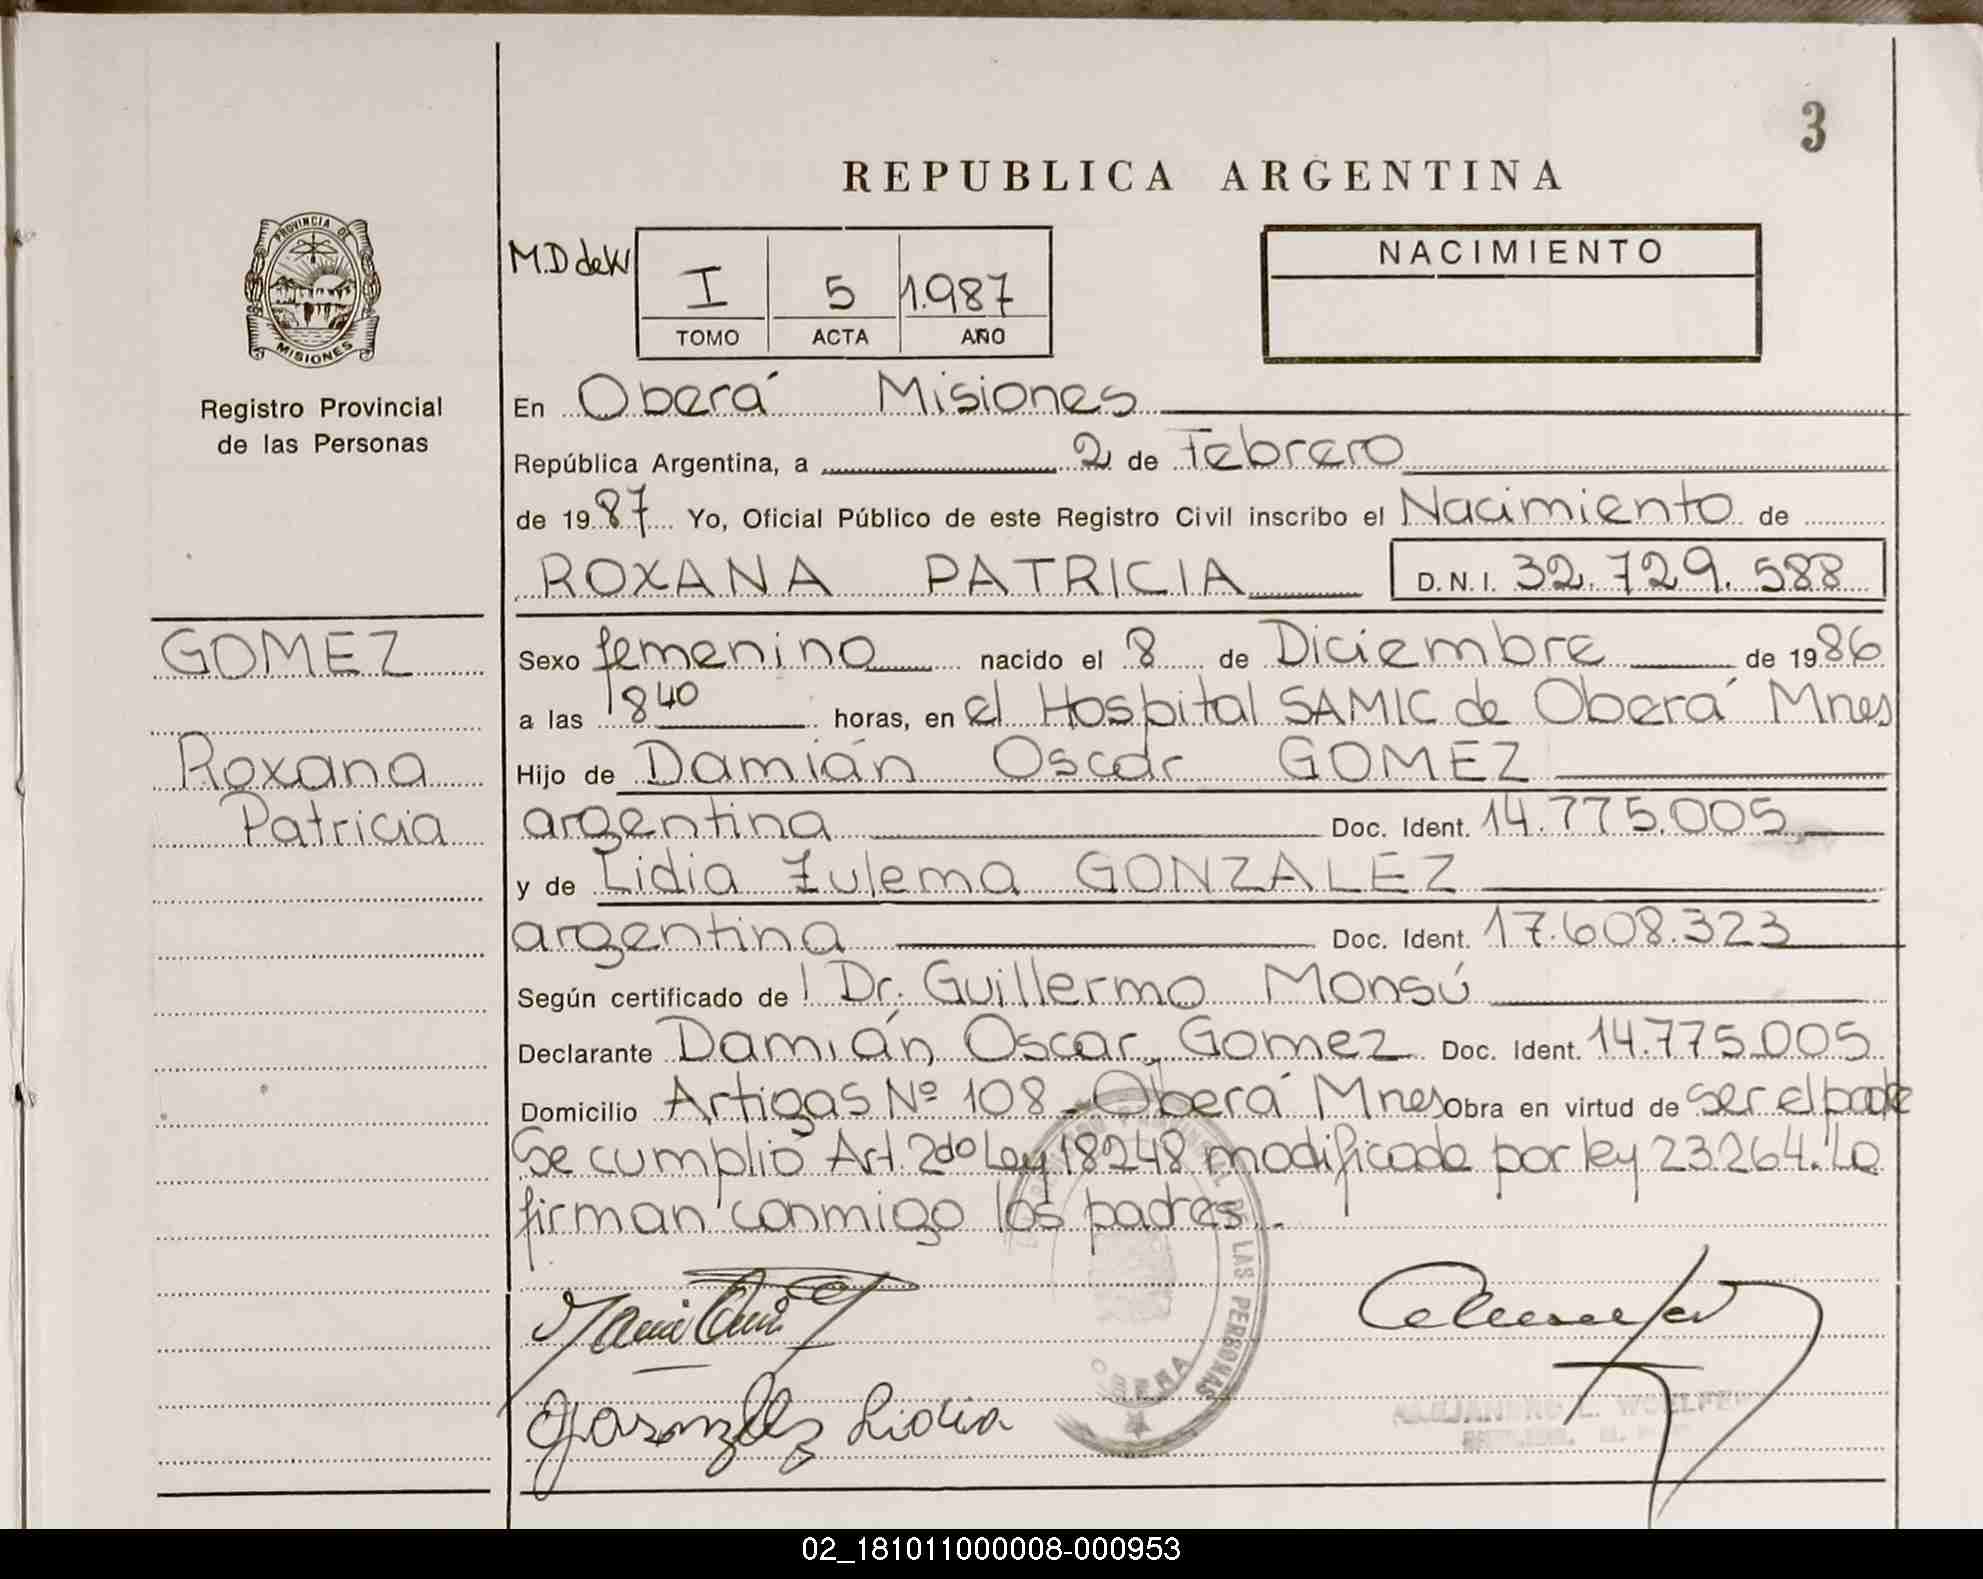 3
REPUBLICA ARGENTINA
PROVINCIA DE
MISIONES
Registro Provincial
de las Personas
M.D deW
I 5 1.987
TOMO ACTA AÑO
NACIMIENTO
En Oberá Misiones
República Argentina, a 2 de Febrero
de 1987 Yo, Oficial Público de este Registro Civil inscribo el Nacimiento de
ROXANA PATRICIA D.N.I. 32.729.588
GOMEZ
Roxana
Patricia
Sexo femenino nacido el 8 de Diciembre de 1986
a las 1840 horas, en el Hospital SAMIC de Oberá Mnes
Hijo de Damián Oscar GOMEZ
argentina Doc. Ident. 14.775.005
y de Lidia Zulema GONZALEZ
argentina Doc. Ident. 17.608.323
Según certificado de Dr. Guillermo Monsú
Declarante Damián Oscar Gomez Doc. Ident. 14.775.005
Domicilio Artigas Nº 108 - Oberá Mnes Obra en virtud de ser el padre
Se cumplió Art. 2do Ley 18248 modificada por ley 23264. La
firman conmigo los padres.-
DE LAS PERSONAS
OBERA
Gonzalez Lidia
02_181011000008-000953